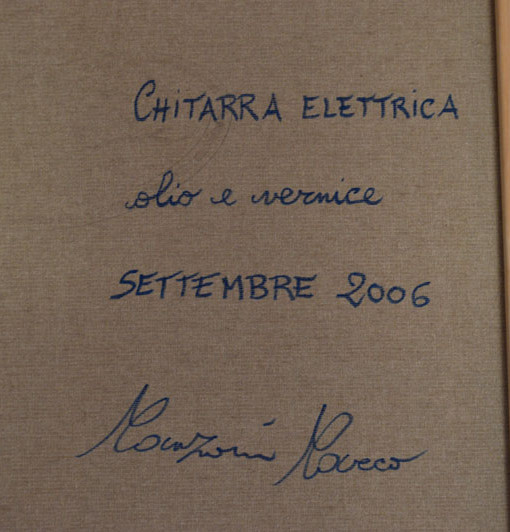 CHITARRA ELETTRICA
olio e vernice
SETTEMBRE 2006
Manzoni Marco